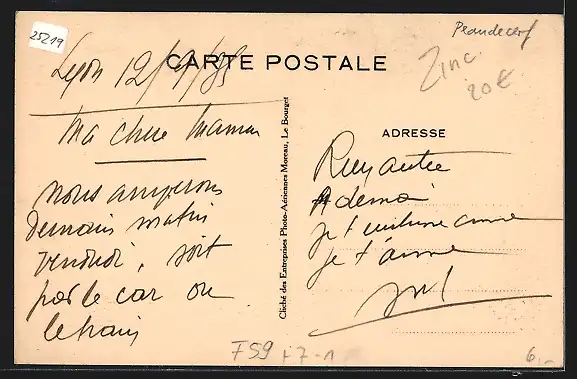 25219
CARTE POSTALE
Lyon 12/9/35
Ma chere Maman
nous arriverons
Demain matin
vendredi, soit
par le car ou
le train
Cliché des Entreprises Photo-Aériennes Moreau, Le Bourget
Zinc
20€
ADRESSE
A demain
je t'embrasse comme
je t'aime
FS9 +7-1
6,-